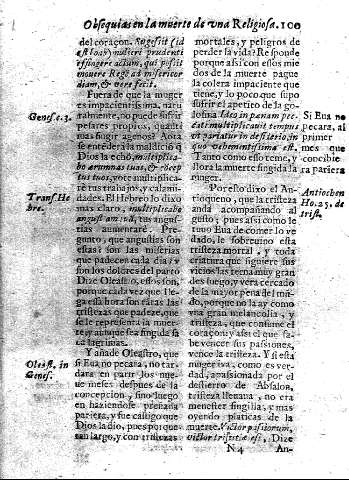 Obsequias en la muerte de vna Religiosa. 100
del coraçon. Sugessit (id
est Ioab) mulieri prudenti
effingere actum, qui posset
mouere Regē ad misericor
diam, & vere fecit.
Fuera de que la muger
es impacientissima, natu-
ralmente, no puede sufrir
pesares propios, quanto
mas fingir agenos? Aora
se entenderà la maldiciō q̄
Dios la echò, multiplica-
bo ærumnas tuas, & cōcep
tus tuos, yote multiplica-
rè tus trabajos, y calami-
dades. El Hebreo lo dixo
mas claro, multiplicabo
angustiam tuā, tus angus-
tias aumentarè. Pre-
gunto, que angustias son
essas? son las miserias
que padecen cada dia? y
son los dolores del parto
Dize Oleastro, essos son,
porque cada vez que lle-
ga essa hora son tātas las
tristezas que padeze, que
se le representa la muer-
te, y aunque sea fingida sa
ca lagrimas.
Y añade Oleastro, que
si Eua no pecara, no tar-
dara en parir los nue-
ue meses despues de la
concepcion, sino luego
en haziendose preñada
pariera, y fue castigo que
Dios la dio, pues porque
tan largo, y con tristezas
Genes. c. 3.
Transf. He
bre.
Oleast. in
Genes.
mortales, y peligros de
perder la vida? Responde
porque assi con essos mie
dos de la muerte pague
la colera impaciente que
tiene, y lo poco que supo
sufrir el apetito de la go-
losina Ideo in pœnam pec-
cati multiplicauit tempus
et pariatur to desiterio in
quo vehementissima est.
Tanto como esso teme, y
llora la muerte fingida la
muger.
Por esso dixo el An-
tioqueno, que la tristeza
anda acompañando al
gusto; pues assi como le
tuuo Eua de comer lo ve
dado, le sobreuino esta
tristeza mortal, y toda
criatura que siguiere sus
vicios las tema muy gran
des luego, y verà cercado
de la mayor pena del mū-
do, porque no la ay como
vna gran melancolia, y
tristeza, que consume el
coraçon: y assi el que sa-
be vencer sus passiones,
vence la tristeza. Y si esta
muger iva, como es ver-
dad, apassionada por el
destierro de Absalon,
tristeza lleuaua, no era
menester fingilla, y mas
oyendo platicas de la
muerte. Victor passionum,
victor tristitiæ est, Dize
N 4 An-
Si Eua no
pecara, al
primer
mes que
concibie
ra pariera
Antiochen
Ho. 25. de
trist.